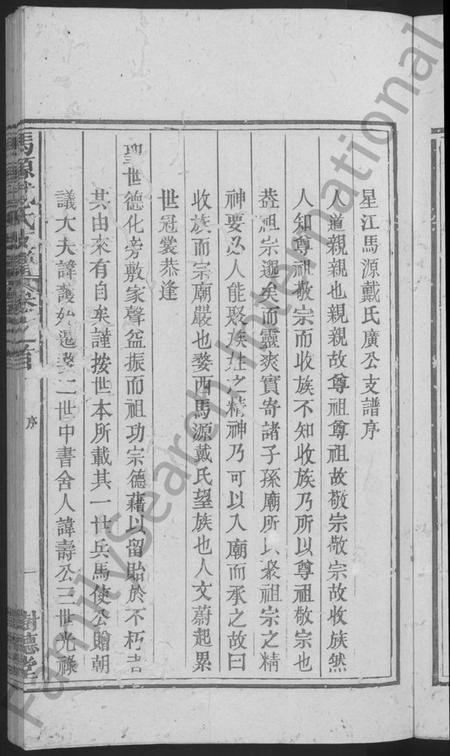 星江馬源戴氏廣公支譜序
人道親親也親親故尊祖尊祖故敬宗敬宗故收族然
人知尊祖敬宗而收族不知收族乃所以尊祖敬宗也
葢祖宗遠矣而靈爽實寄諸子孫廟所以聚祖宗之精
神要必人能聚族姓之精神乃可以入廟而承之故曰
收族而宗廟嚴也婺西馬源戴氏望族也人文蔚起累
世冠裳恭逢
聖世德化旁敷家聲益振而祖功宗德藉以留貽於不朽者
其由來有自矣謹按世本所載其一世兵馬使公贈朝
議大夫諱護始遷婺二世中書舍人諱壽公三世光祿
馬源戴氏 卷之首
序
一
樹德堂
FamilySearch International